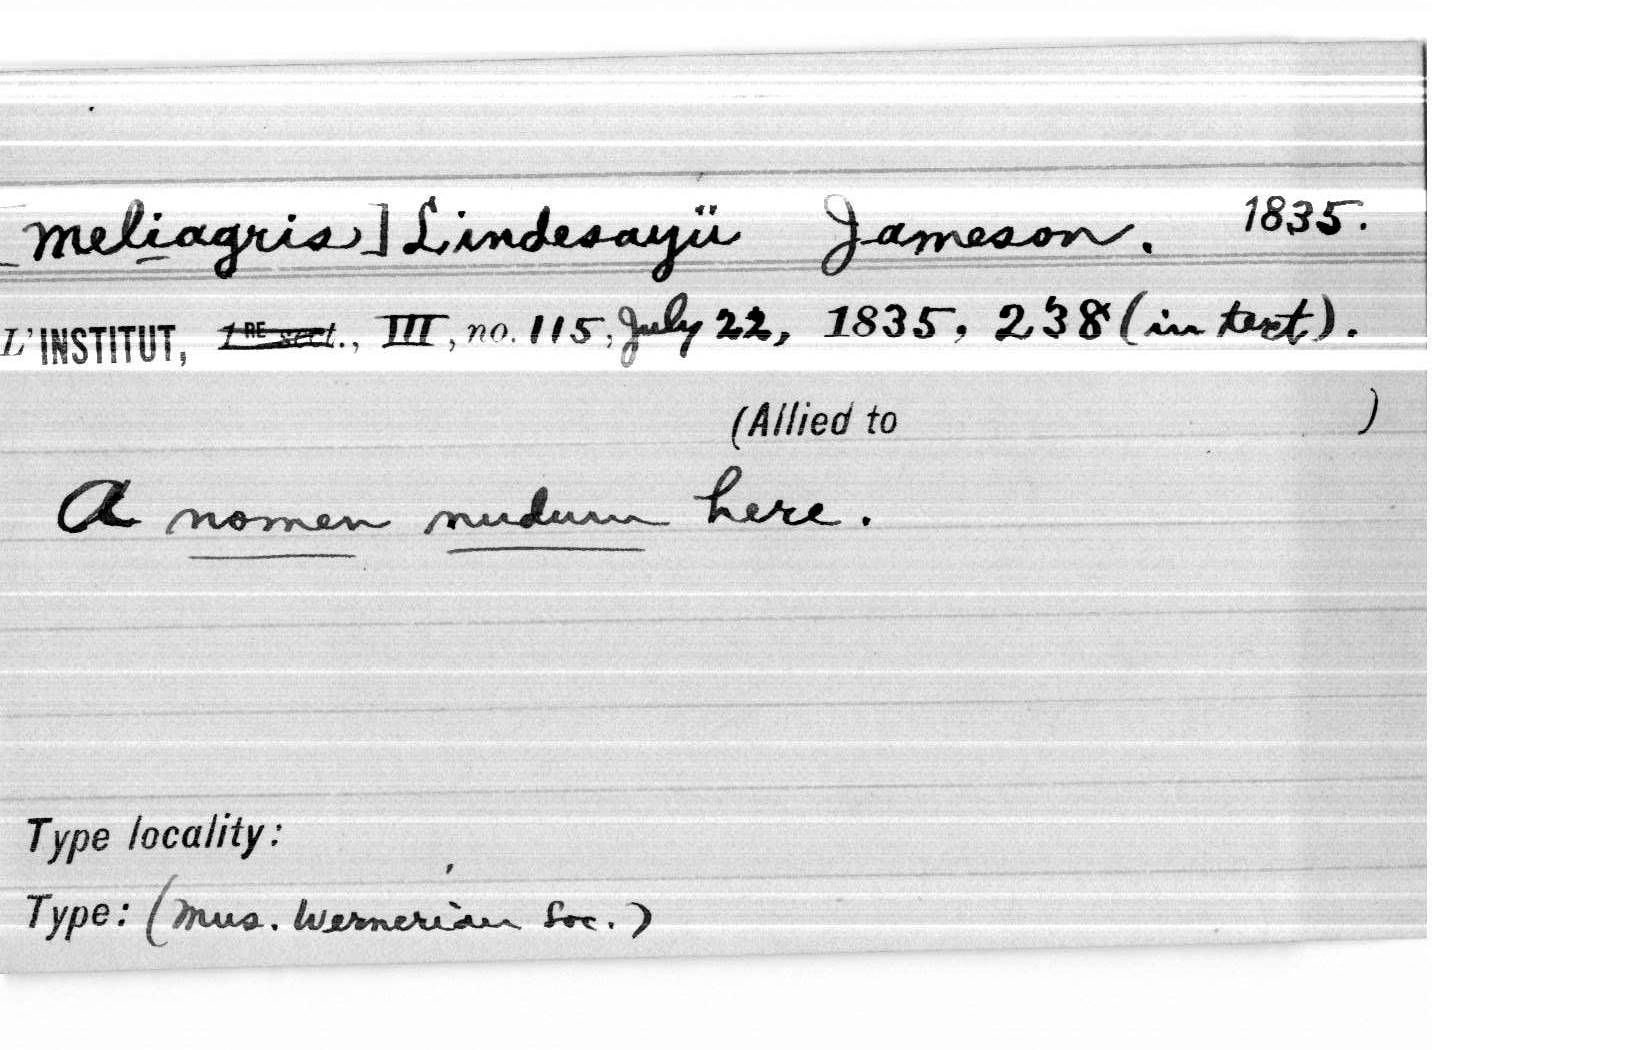 [meliagris] Lindesayii Jameson. 1835.
L'INSTITUT, 1RE sect., III, no. 115, July 22, 1835, 238 (in text).
(Allied to )
A nomen nudum here.
Type locality:
Type: (Mus. Wernerian Soc.)